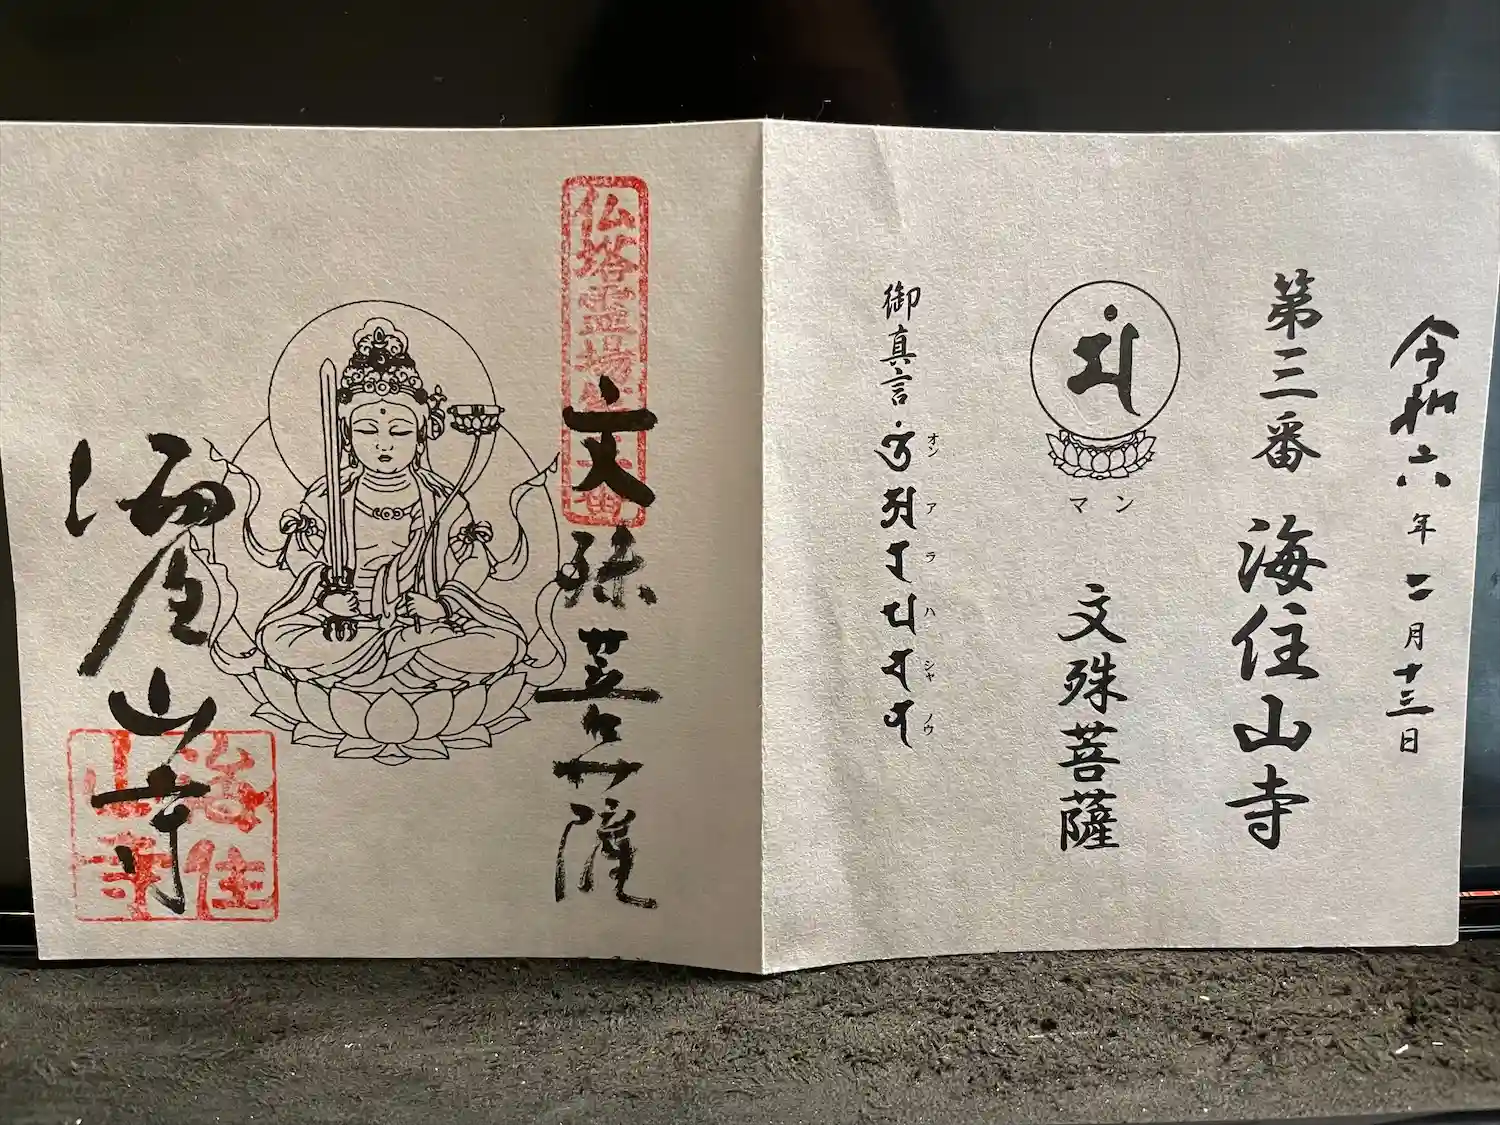 令和六年二月十三日
第三番 海住山寺
マン
文殊菩薩
御真言
オン ア ラ ハ シャ ノウ
文殊菩薩
海住山寺
海住山寺